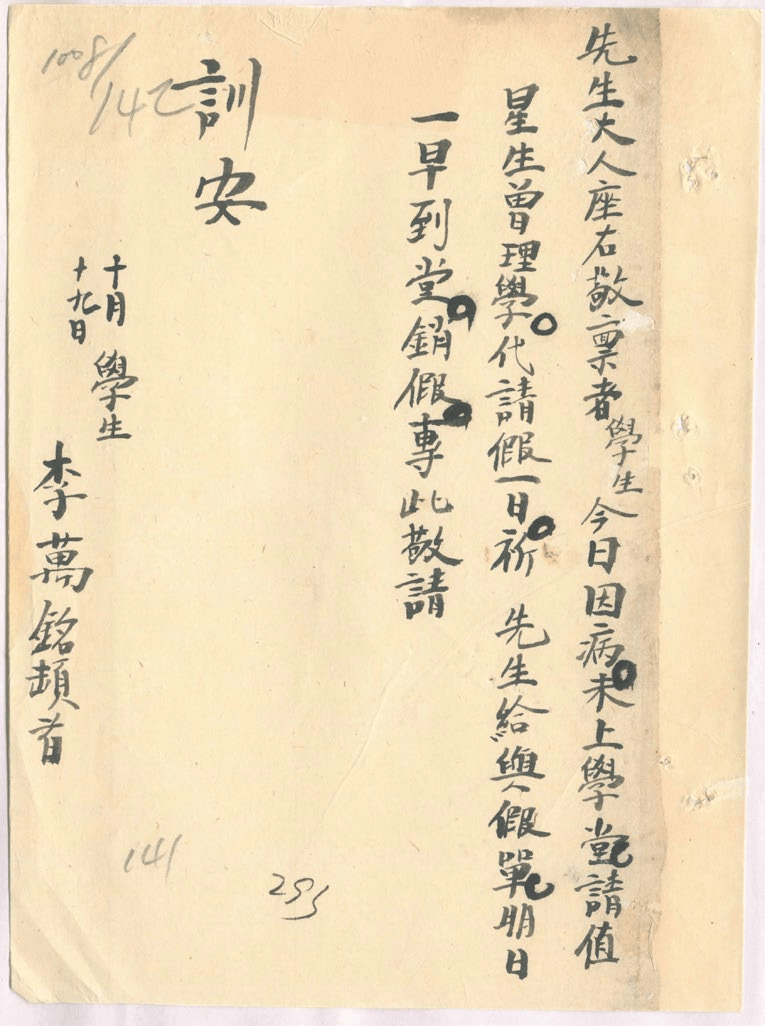 先生大人座右敬稟者學生今日因病未上學堂請值
星生曾理學代請假一日祈 先生給與假單明日
一早到堂銷假專此敬請
訓安
十月
十九日
學生
李萬銘頓首
1008/142
141
295